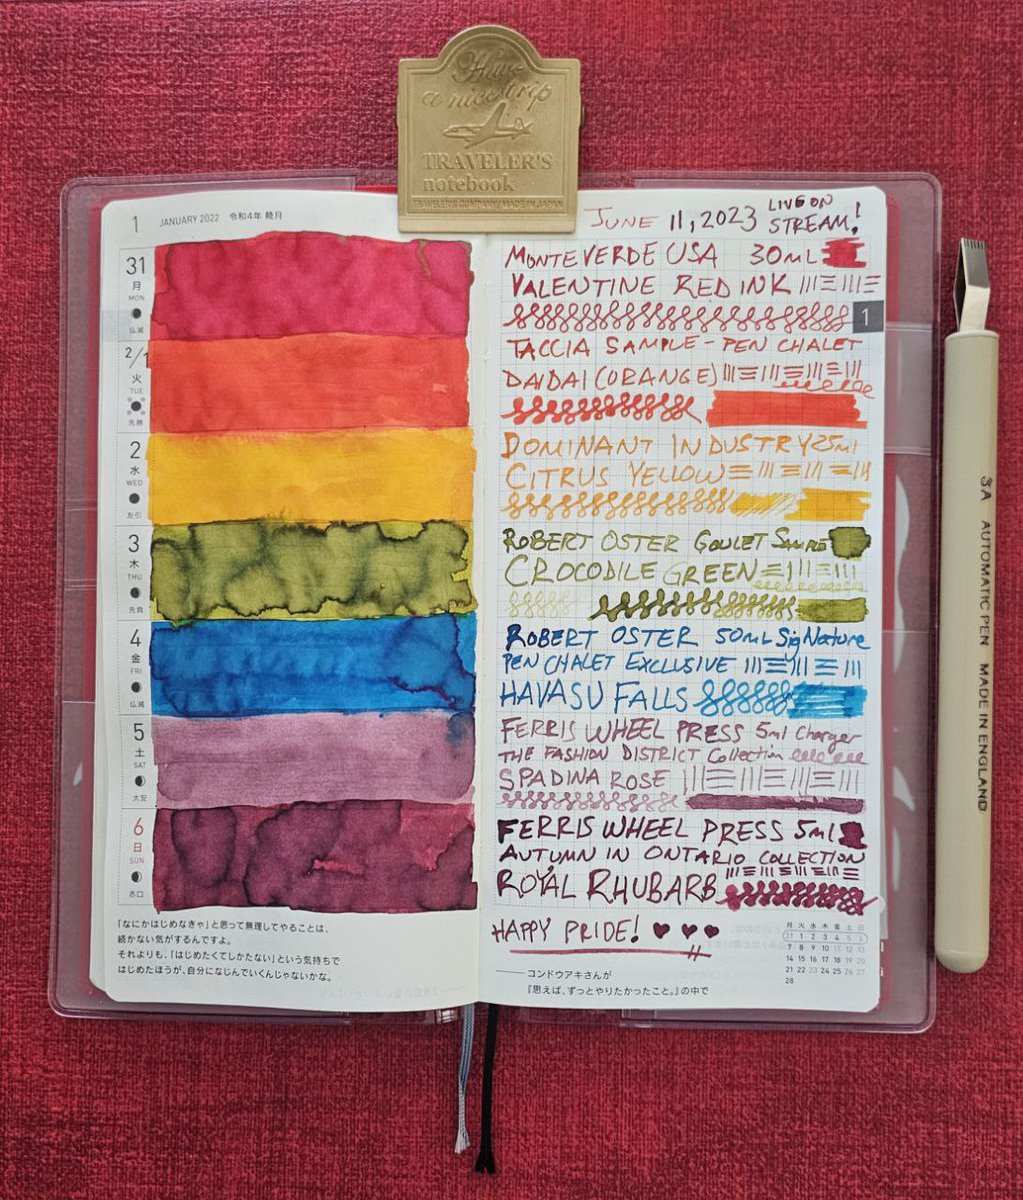 Have
a nice trip
TRAVELER'S
notebook
TRAVELER'S COMPANY MADE IN JAPAN
1 JANUARY 2022 令和4年 睦月
31
月
MON
仏滅
2/1
火
TUE
先勝
2
水
WED
友引
3
木
THU
先負
4
金
FRI
仏滅
5
土
SAT
大安
6
日
SUN
赤口
「なにかはじめなきゃ」と思って無理してやることは、
続かない気がするんですよ。
それよりも、「はじめたくてしかたない」という気持ちで
はじめたほうが、自分になじんでいくんじゃないかな。
JUNE 11, 2023 LIVE ON
STREAM!
MONTEVERDE USA 30ML
VALENTINE RED INK
1
TACCIA SAMPLE - PEN CHALET
DAIDAI (ORANGE)
DOMINANT INDUSTRY 25ml
CITRUS YELLOW
ROBERT OSTER GOULET SAMPLE
CROCODILE GREEN
ROBERT OSTER 50ML SigNature
PEN CHALET EXCLUSIVE
HAVASU FALLS
FERRIS WHEEL PRESS 5ml Charger
THE FASHION DISTRICT Collection
SPADINA ROSE
FERRIS WHEEL PRESS 5ml
AUTUMN IN ONTARIO COLLECTION
ROYAL RHUBARB
HAPPY PRIDE!
月 火 水 木 金 土 日
31 1 2 3 4 5 6
7 8 9 10 11 12 13
14 15 16 17 18 19 20
21 22 23 24 25 26 27
28
コンドウアキさんが
『思えば、ずっとやりたかったこと。』の中で
3A AUTOMATIC PEN MADE IN ENGLAND